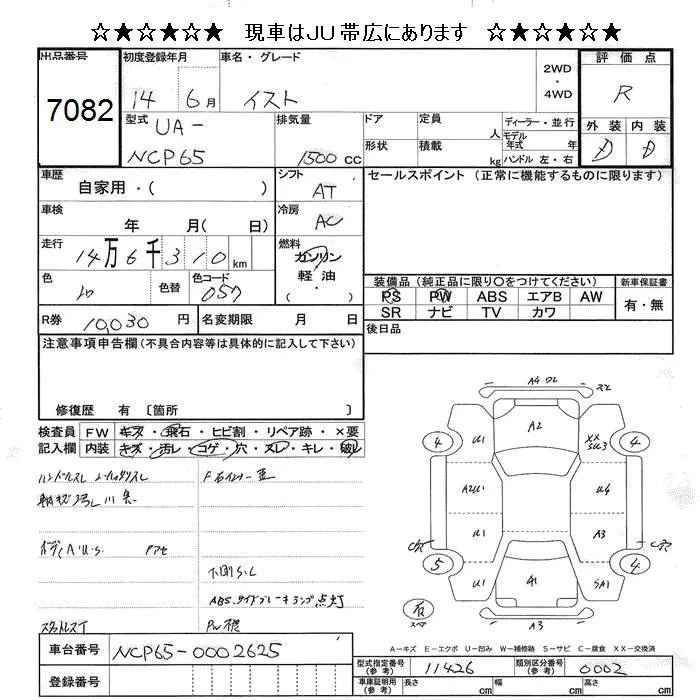 ☆★☆★☆★ 現車はJU帯広にあります ☆★☆★☆★
出品番号
7082
初度登録年月
14 6月
車名・グレード
イスト
2WD
・
4WD
評価点
R
外装 内装
D D
型式
UA-
NCP65
排気量
1500 CC
ドア
定員
人
形状
積載
kg
ディーラー・並行
モデル
年式 年
ハンドル 左・右
車歴
自家用・( )
シフト
AT
セールスポイント (正常に機能するものに限ります)
車検
年 月( 日)
冷房
AC
走行
14万6千310 km
燃料
ガソリン
軽油
( ・ )
色
色替
色コード
057
装備品 (純正品に限り○をつけてください)
PS PW ABS エアB AW
SR ナビ TV カワ
新車保証書
有・無
R券
10,030 円
名変期限 月 日
後日品
注意事項申告欄 (不具合内容等は具体的に記入して下さい)
修復歴 有 〔箇所 〕
検査員
記入欄
FW キズ・飛石・ヒビ割・リペア跡・×要
内装 キズ・汚レ・コゲ・穴・スレ・キレ・破レ
ハンドルスレ
ボディ A・U・S
下回り S・L
ABS、サイドブレーキランプ点灯
スタッドレスT
A4
A2
U1
XX
SU3
4
4
A2U1
U4
U1
A3
5
4
U1
A1
SA1
A3
A-キズ E-エクボ U-凹み W-補修跡 S-サビ C-腐食 XX-交換済
車台番号
NCP65-0002625
登録番号
型式指定番号
(参考)
11426
類別区分番号
(参考)
0002
車庫証明用
(参考)
長さ cm
幅 cm
高さ cm